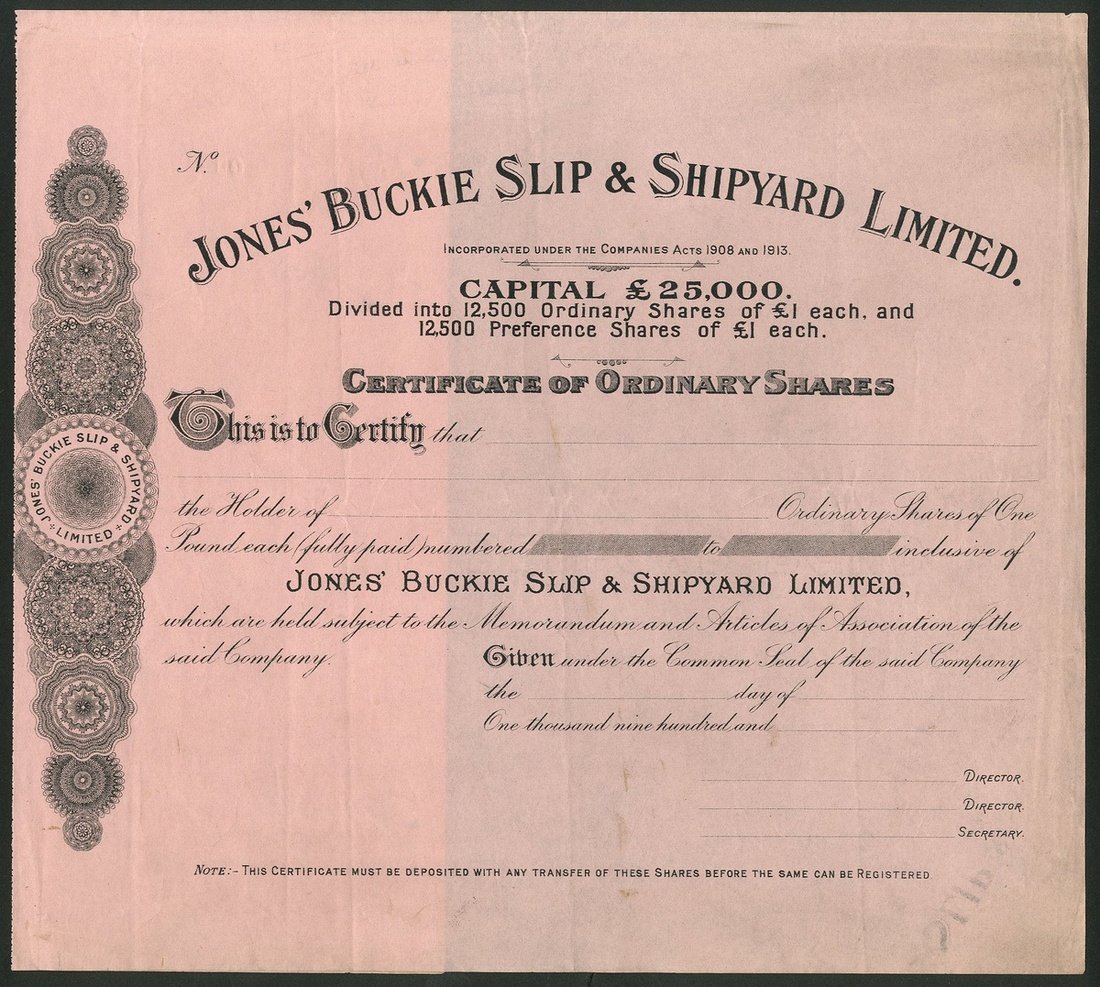 No.
JONES' BUCKIE SLIP & SHIPYARD LIMITED.
INCORPORATED UNDER THE COMPANIES ACTS 1908 AND 1913.
CAPITAL £25,000.
Divided into 12,500 Ordinary Shares of £1 each, and
12,500 Preference Shares of £1 each.
CERTIFICATE OF ORDINARY SHARES
This is to Certify that
the Holder of Ordinary Shares of One
Pound each (fully paid) numbered to inclusive of
JONES' BUCKIE SLIP & SHIPYARD LIMITED,
which are held subject to the Memorandum and Articles of Association of the
said Company. Given under the Common Seal of the said Company
the day of
One thousand nine hundred and
DIRECTOR.
DIRECTOR.
SECRETARY.
NOTE:- THIS CERTIFICATE MUST BE DEPOSITED WITH ANY TRANSFER OF THESE SHARES BEFORE THE SAME CAN BE REGISTERED.
JONES' BUCKIE SLIP & SHIPYARD LIMITED